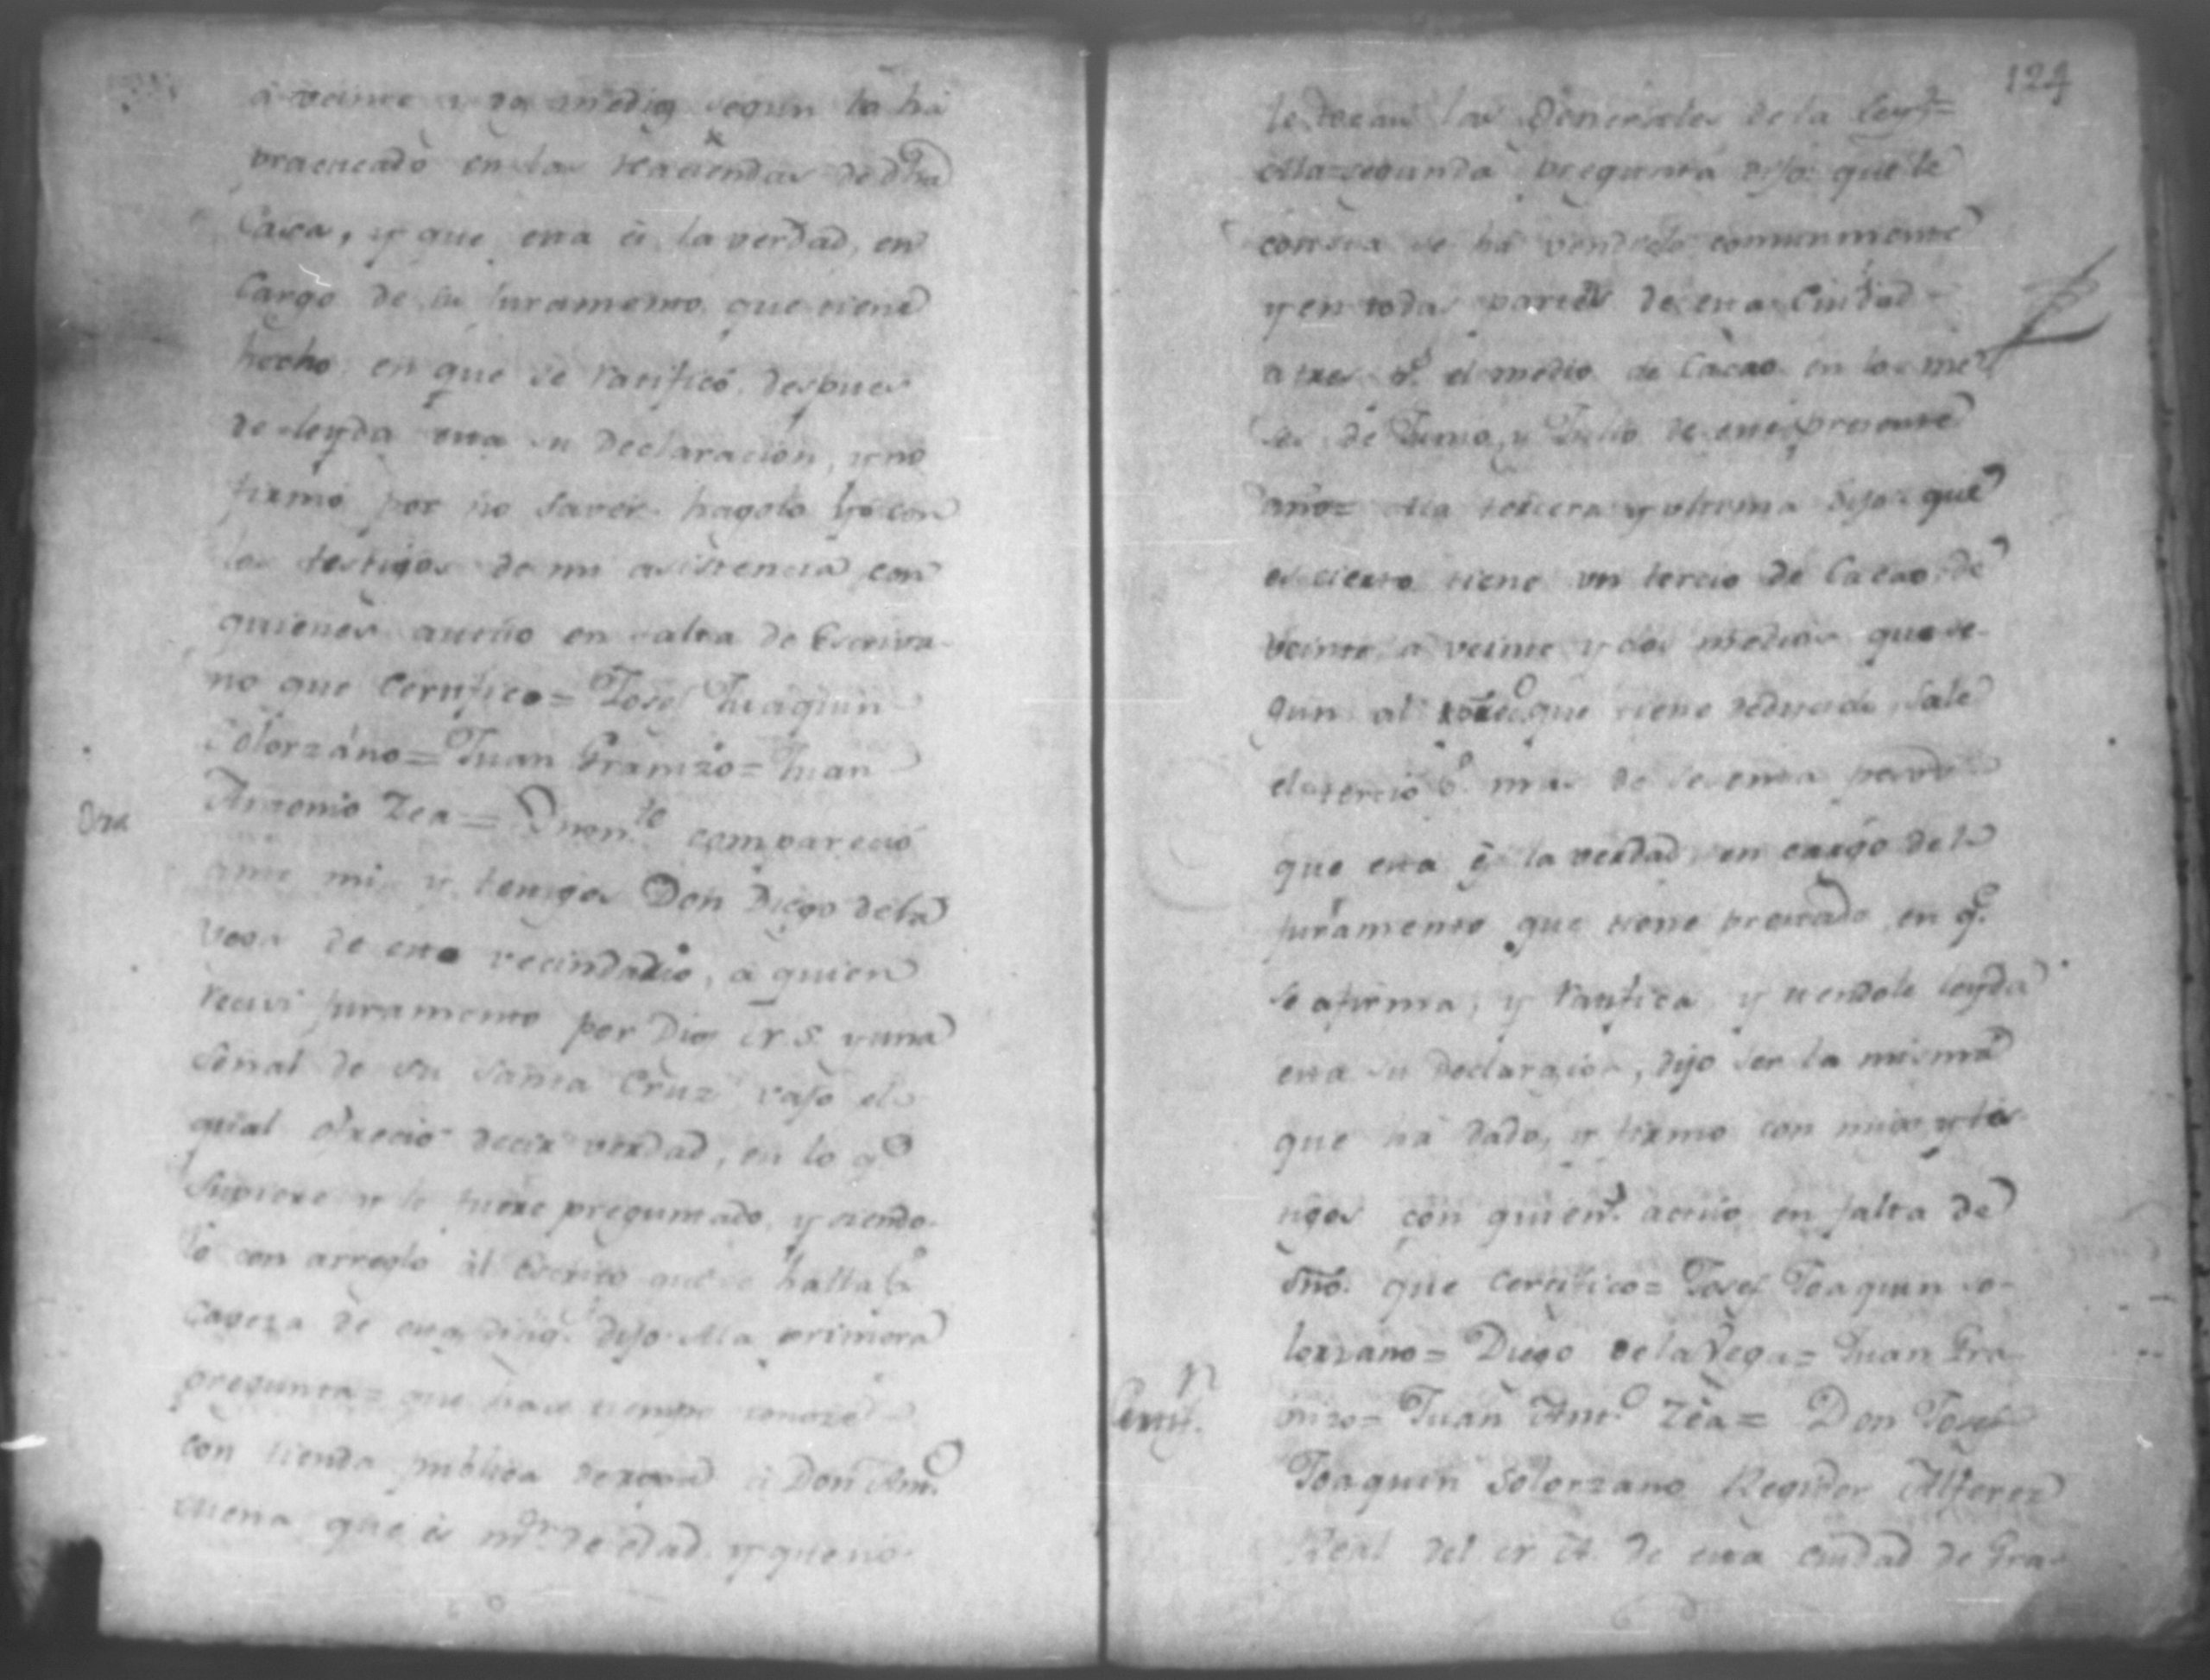 a veinte y dos medios segun lo ha
practicado en las Haciendas de dha
Casa, y que esta es la verdad, en
Cargo de su Juramento que tiene
hecho en que se ratificó despues
de leyda esta su Declaracion, y no
firmó por no saver hagolo Yo con
los testigos de mi asistencia con
quienes actúo en falta de Escriva-
no que Certifico = Josef Juaquin
Solorzano = Juan Granizo = Juan
Otra
Antonio Zea = Ynon.te comparecio
ante mi y testigos Don Diego de la
Vega de este vecindario, a quien
recivi juramento por Dios N. S. y una
Señal de su Santa Cruz vajo el
qual ofrecio decir verdad, en lo q.e
Supiere y le fuere preguntado, y siendo-
lo con arreglo al Escrito que se halla
Caveza de estas dilig.s dijo. A la primera
pregunta = que hace tiempo conoze
con tienda publica a Don Ant.o
que es m.or de edad, y que no
124
le tocan las Generales de la Ley =
A la segunda pregunta dijo: que le
consta se ha vendido comunmente
y en todas partes de esta Ciudad
a tres r.s el medio de Cacao en los me-
ses de Junio, y Julio de este presente
año = A la tercera y ultima dijo: que
es cierto tiene un tercio de Cacao de
veinte a veinte y dos medios que se-
gun al que tiene deducido Sale
el tercio p.r mas de sesenta pesos
que esta es la verdad en cargo del
juramento que tiene prestado en q.e
se afirma, y ratifica y siendole leyda
esta su declaracion, dijo ser la misma
que ha dado, y firmo con migo y tes-
tigos con quien.s actúo en falta de
Sno. que Certifico = Josef Joaquin So-
lorzano = Diego de la Vega = Juan Gra-
Certif.n
nizo = Juan Ant.o Zea = Don Josef
Joaquin Solorzano Regidor Alferez
Real del de esta ciudad de Gra-